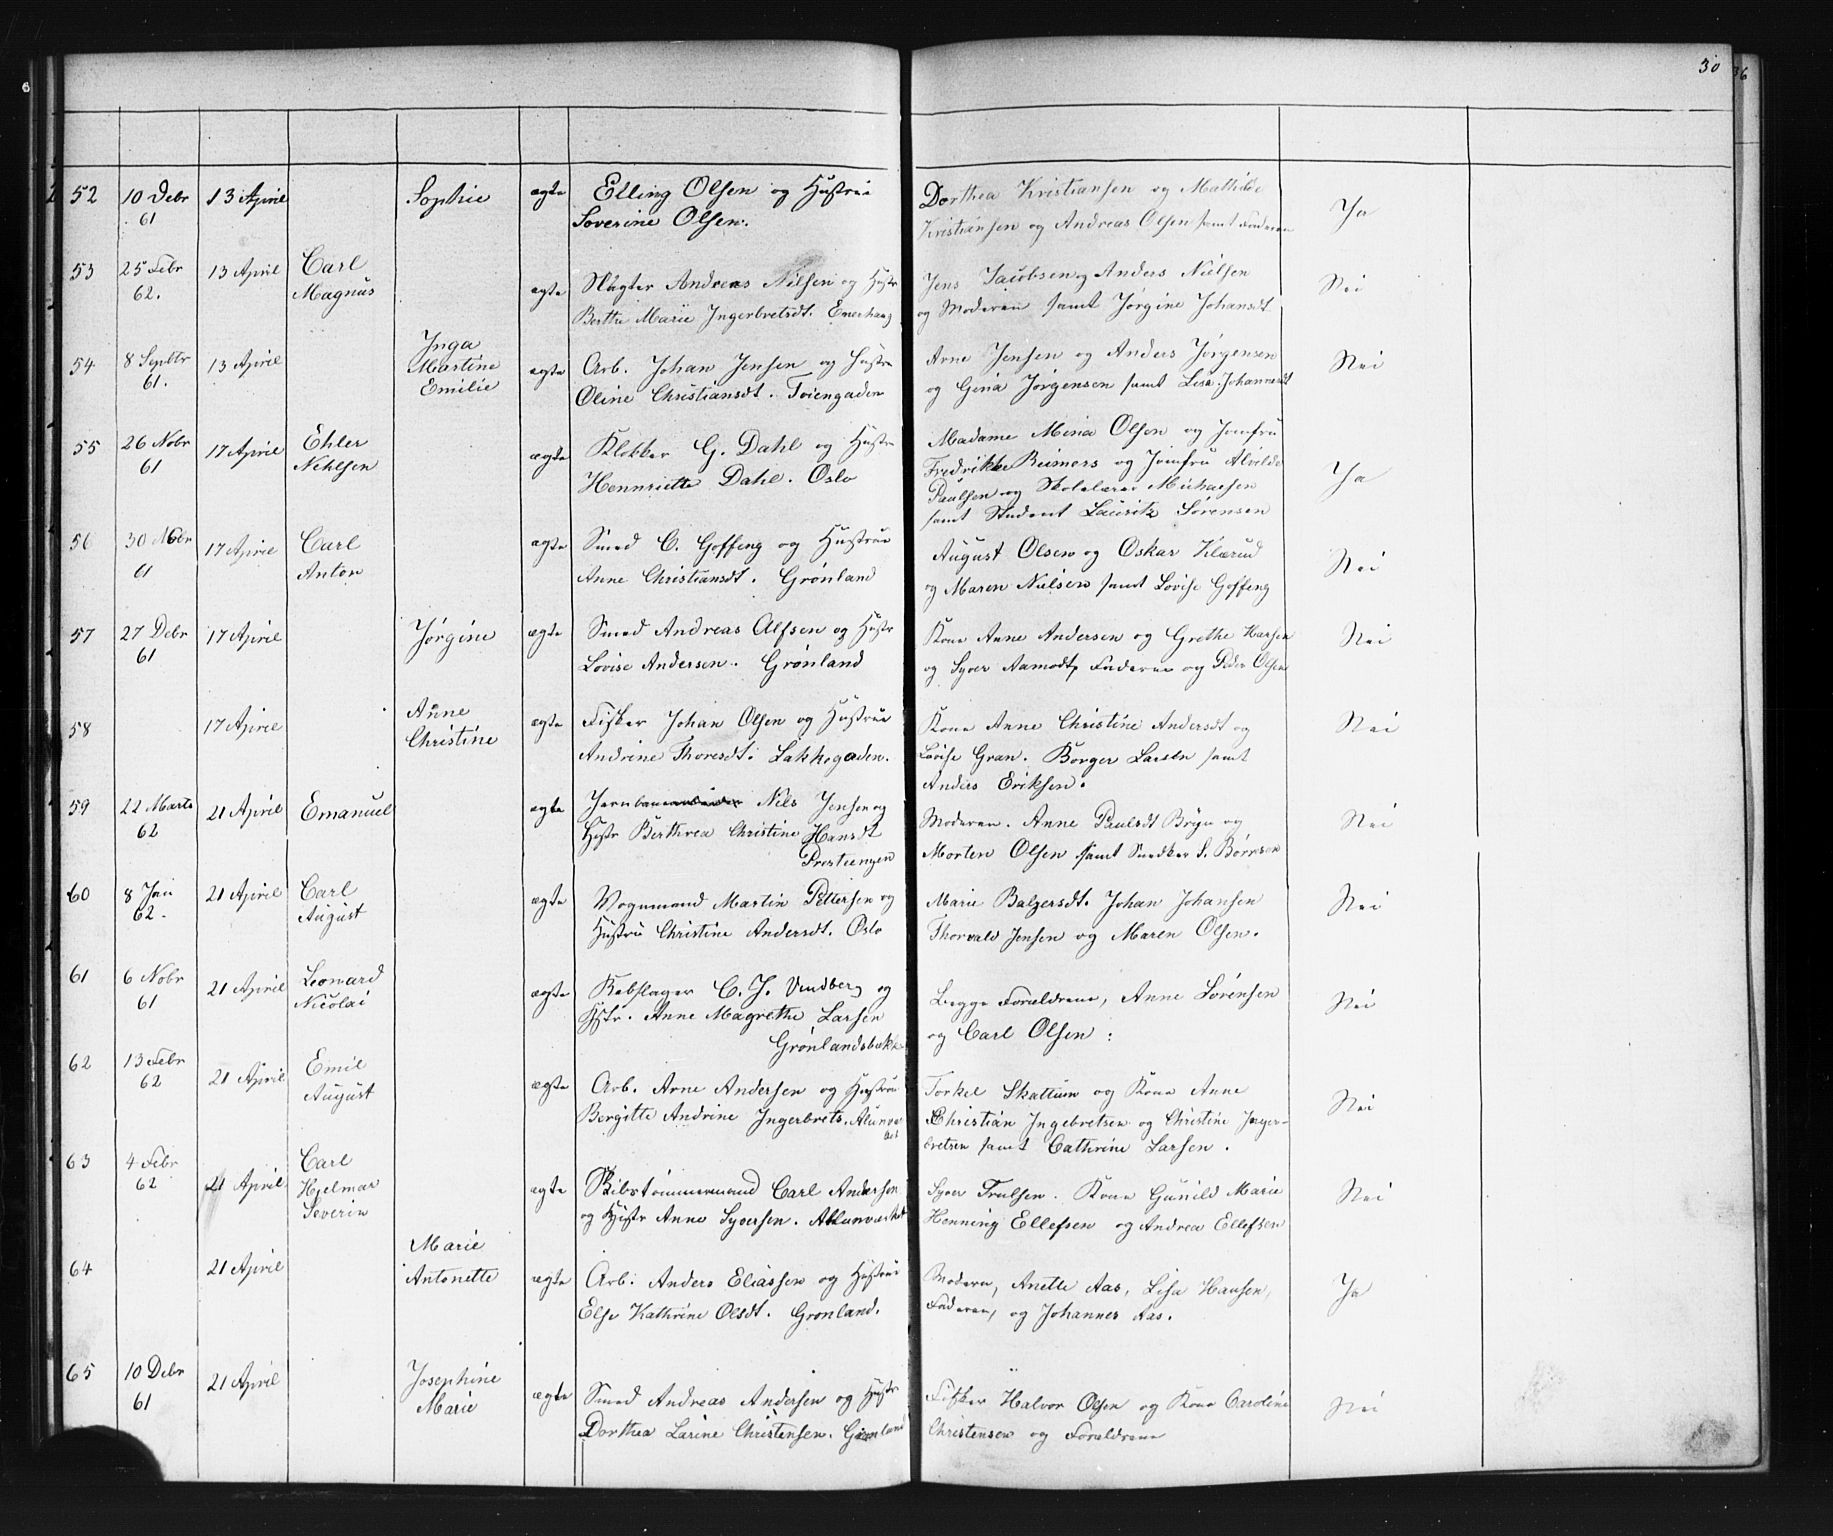 30
36
52 10 Debr 13 April Sophie ægte Elling Olsen og Hustrue Dorthea Kristiansen og Mathilde Ja
61 Soverine Olsen. Kristiansen og Andreas Olsen samt Faderen
53 25 Febr 13 April Carl ægte Slagter Andreas Nilsen og Hustr Jens Jacobsen og Anders Nielsen Nei
62. Magnus Berthe Marie Ingerbretsdt. Enerhaug og Moderen samt Jørgine Johansdt
54 8 Septbr 13 April Inga ægte Arb. Johan Jensen og Hustru Arne Jensen og Anders Jørgensen Nei
61. Martine Oline Christiansdt. Toiengaden og Gina Jørgensen samt Lisa Johannesdt
Emilie
55 26 Nobr 17 April Ehler ægte Klokker G. Dahl og Hustru Madame Mina Olsen og Jomfru Ja
61 Nehlsen Hennriette Dahl. Oslo Fredrikke Reimers og Jomfru Alvilde
Paulsen og Skolelærer Michaelsen
samt Student Lauritz Sørensen
56 30 Nobr 17 April Carl ægte Smed C. Goffeng og Hustrue August Olsen og Oskar Klærud Nei
61 Anton Anne Christiansdt. Grønland og Maren Nielsen samt Lovise Goffeng
57 27 Debr 17 April Jørgine ægte Smed Andreas Alfsen og Hustr Kone Anne Andersen og Grethe Hansen Nei
61 Lovise Andersen. Grønland og Syver Aamodt, Faderen og Peder Olsen
58 17 April Anne ægte Fisker Johan Olsen og Hustrue Kone Anne Christine Andersdt og Nei
Christine Andrine Thoresdt. Lakkegaden. Lovise Gran. Borger Larsen samt
Anders Eriksen.
59 22 Marts 21 April Emanuel ægte Jernbanearbeider Nils Jensen og Moderen. Anne Paulsdt Bryn og Nei
62 Hustr Berthrea Christine Hansdt Morten Olsen samt Snedker S. Børresen
Presteengen
60 8 Jan 21 April Carl ægte Vognmand Martin Pettersen og Marie Balzersdt. Johan Johansen Nei
62. August Hustru Christine Andersdt. Oslo Thorvald Jensen og Maren Olsen.
61 6 Nobr 21 April Leonard ægte Rebslager C. J. Vindberg og Begge Forældrene, Anne Sørensen Nei
61 Nicolai Hstr. Anne Magrethe Larsen og Carl Olsen
Grønlandsbækk
62 13 Febr 21 April Emil ægte Arb. Arne Andersen og Hustrue Torkel Skattum og Kone Anne Nei
62 August Bergitte Andrine Ingerbrets. Alunver Christian Ingebretsen og Christine Inger-
ket bretsen samt Cathrine Larsen.
63 4 Febr 21 April Carl ægte Skibstømmermand Carl Andersen Syver Trulsen. Kone Gunild Marie Nei
62 Hjelmar og Hustr Anne Syversen. Allunværket Henning Ellefsen og Andrea Ellefsen
Severin
64 21 April Marie ægte Arb. Anders Eliassen og Hustrue Moderen, Anette Aas, Lisa Hansen, Ja
Antonette Else Kathrine Olsdt. Grønland. Faderen, og Johannes Aas.
65 10 Debr 21 April Josephine ægte Smed Andreas Andersen og Hustr Fisker Halvor Olsen og Kone Caroline Nei
61 Marie Dorthea Larine Christensen. Grønland Christensen og Forældrene